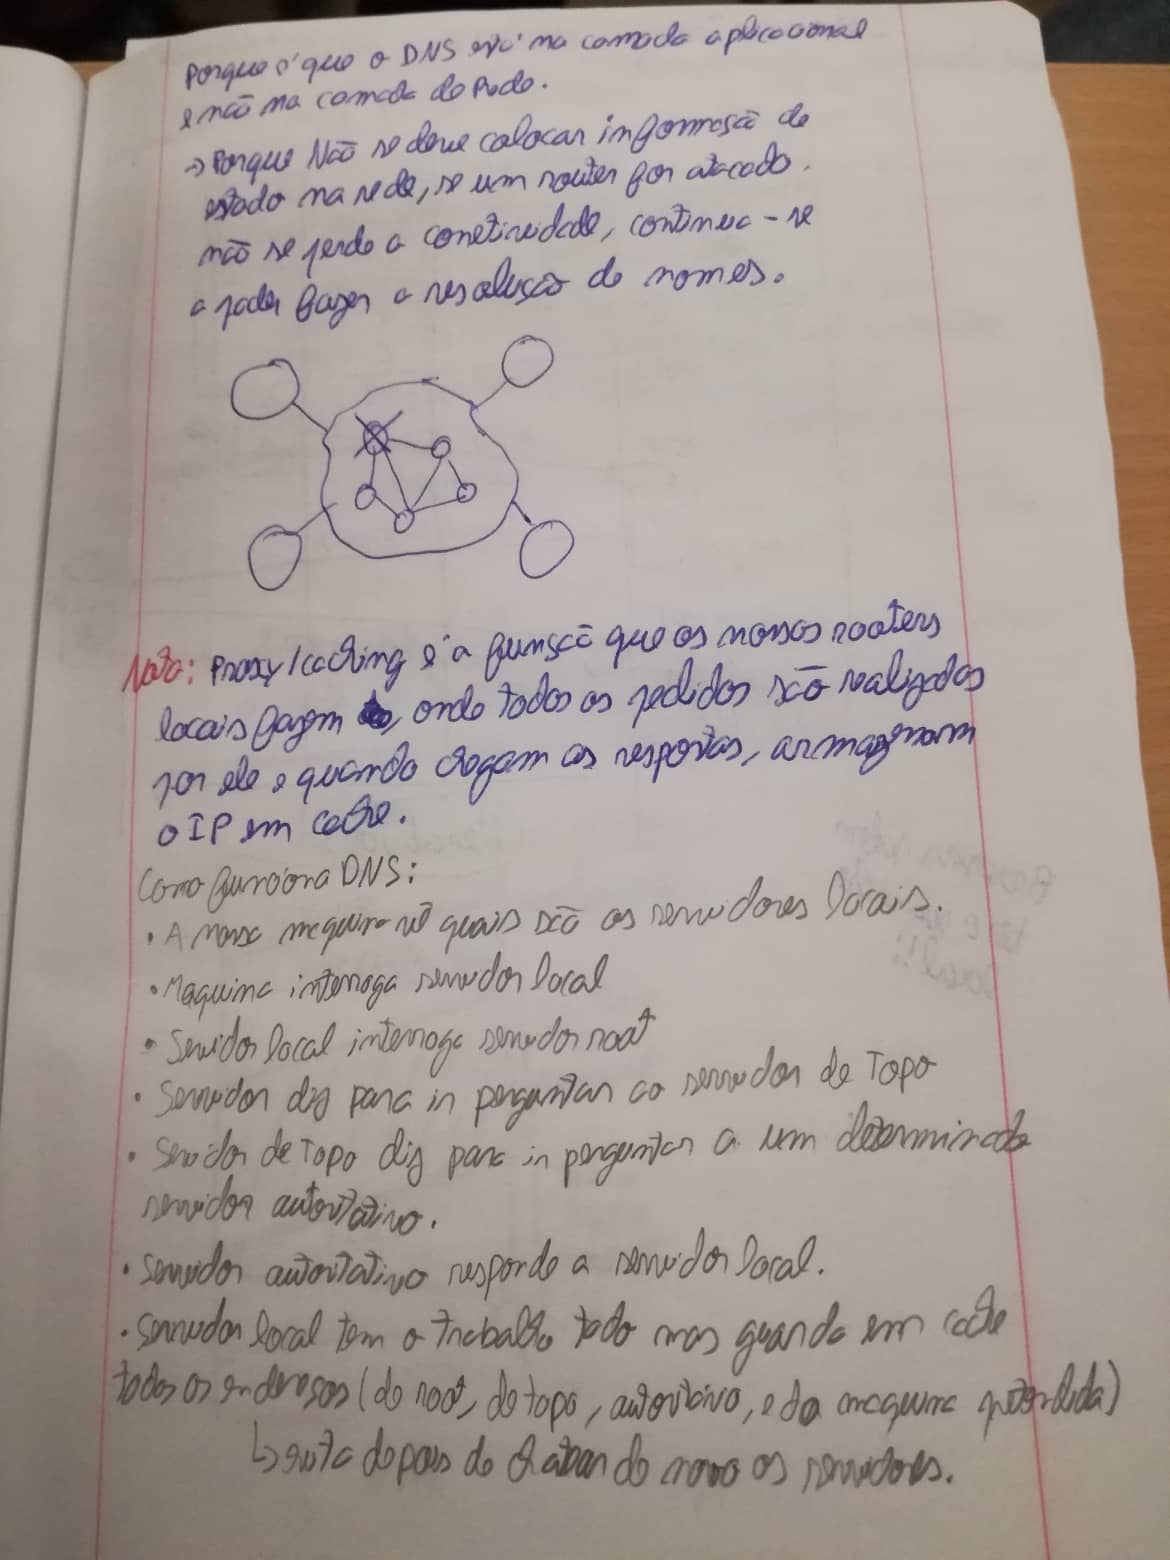 Porque é que o DNS está na camada aplicacional
e não na camada de rede.
→ Porque Não se deve colocar informação de
estado na rede, se um router for atacado
não se perde a conetividade, continua-se
a poder fazer a resolução de nomes.
Nota: Proxy/caching é a função que os nossos rooters
locais fazem, onde todos os pedidos são realizados
por ele e quando chegam as respostas, armazenam
o IP em cache.
Como funciona DNS:
• A nossa maquina vê quais são os servidores locais.
• Maquina interroga servidor local
• Servidor local interroga servidor root
• Servidor diz para ir perguntar ao servidor de Topo
• Servidor de Topo diz para ir perguntar a um determinado
servidor autoritativo.
• Servidor autoritativo responde a servidor local.
• Servidor local tem o trabalho todo mas guarda em cache
todos os endereços (do root, do topo, autoritativo, e da maquina pretendida)
↳ evita depois de chatear de novo os servidores.